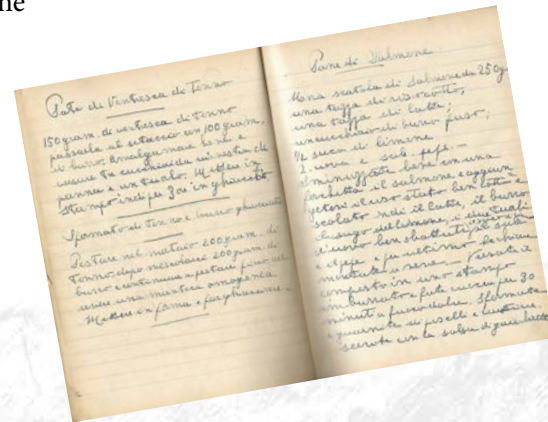 ne
Patè di Ventresca di Tonno
150 gram. di ventresca di tonno
passarla al setaccio con 100 gram.
di burro. Amalgamare bene e
unire tre cucchiaiate di
panna e un tuorlo. Mettere in
stampo indi per 3 ore in ghiaccio
Sformato di tonno e burro ghiacciato
Pestare nel mortaio 200 gram. di
tonno, dopo mescolare 200 gram. di
burro e continuare a pestare fino ad
avere una manteca omogenea.
Mettere in forma e far ghiacciare.
Pane di Salmone
Una scatola di salmone da 250 g.
una tazza di riso cotto;
una tazza di latte;
un cucchiaio di burro fuso;
½ succo di limone
2 uova e sale, pepe. —
Sminuzzate bene con una
forchetta il salmone e
il riso stato ben cotto e
scolato indi il latte, il burro
il sugo del limone, i due tuorli
d'uovo ben sbattuti, il sale
e il pepe e per ultimo le chiare
montate a neve. — Versate il
composto in uno stampo
imburrato e fate cuocere per 30
minuti a fuoco dolce. Sformate
e guarnite di piselli e
servite con la salsa di